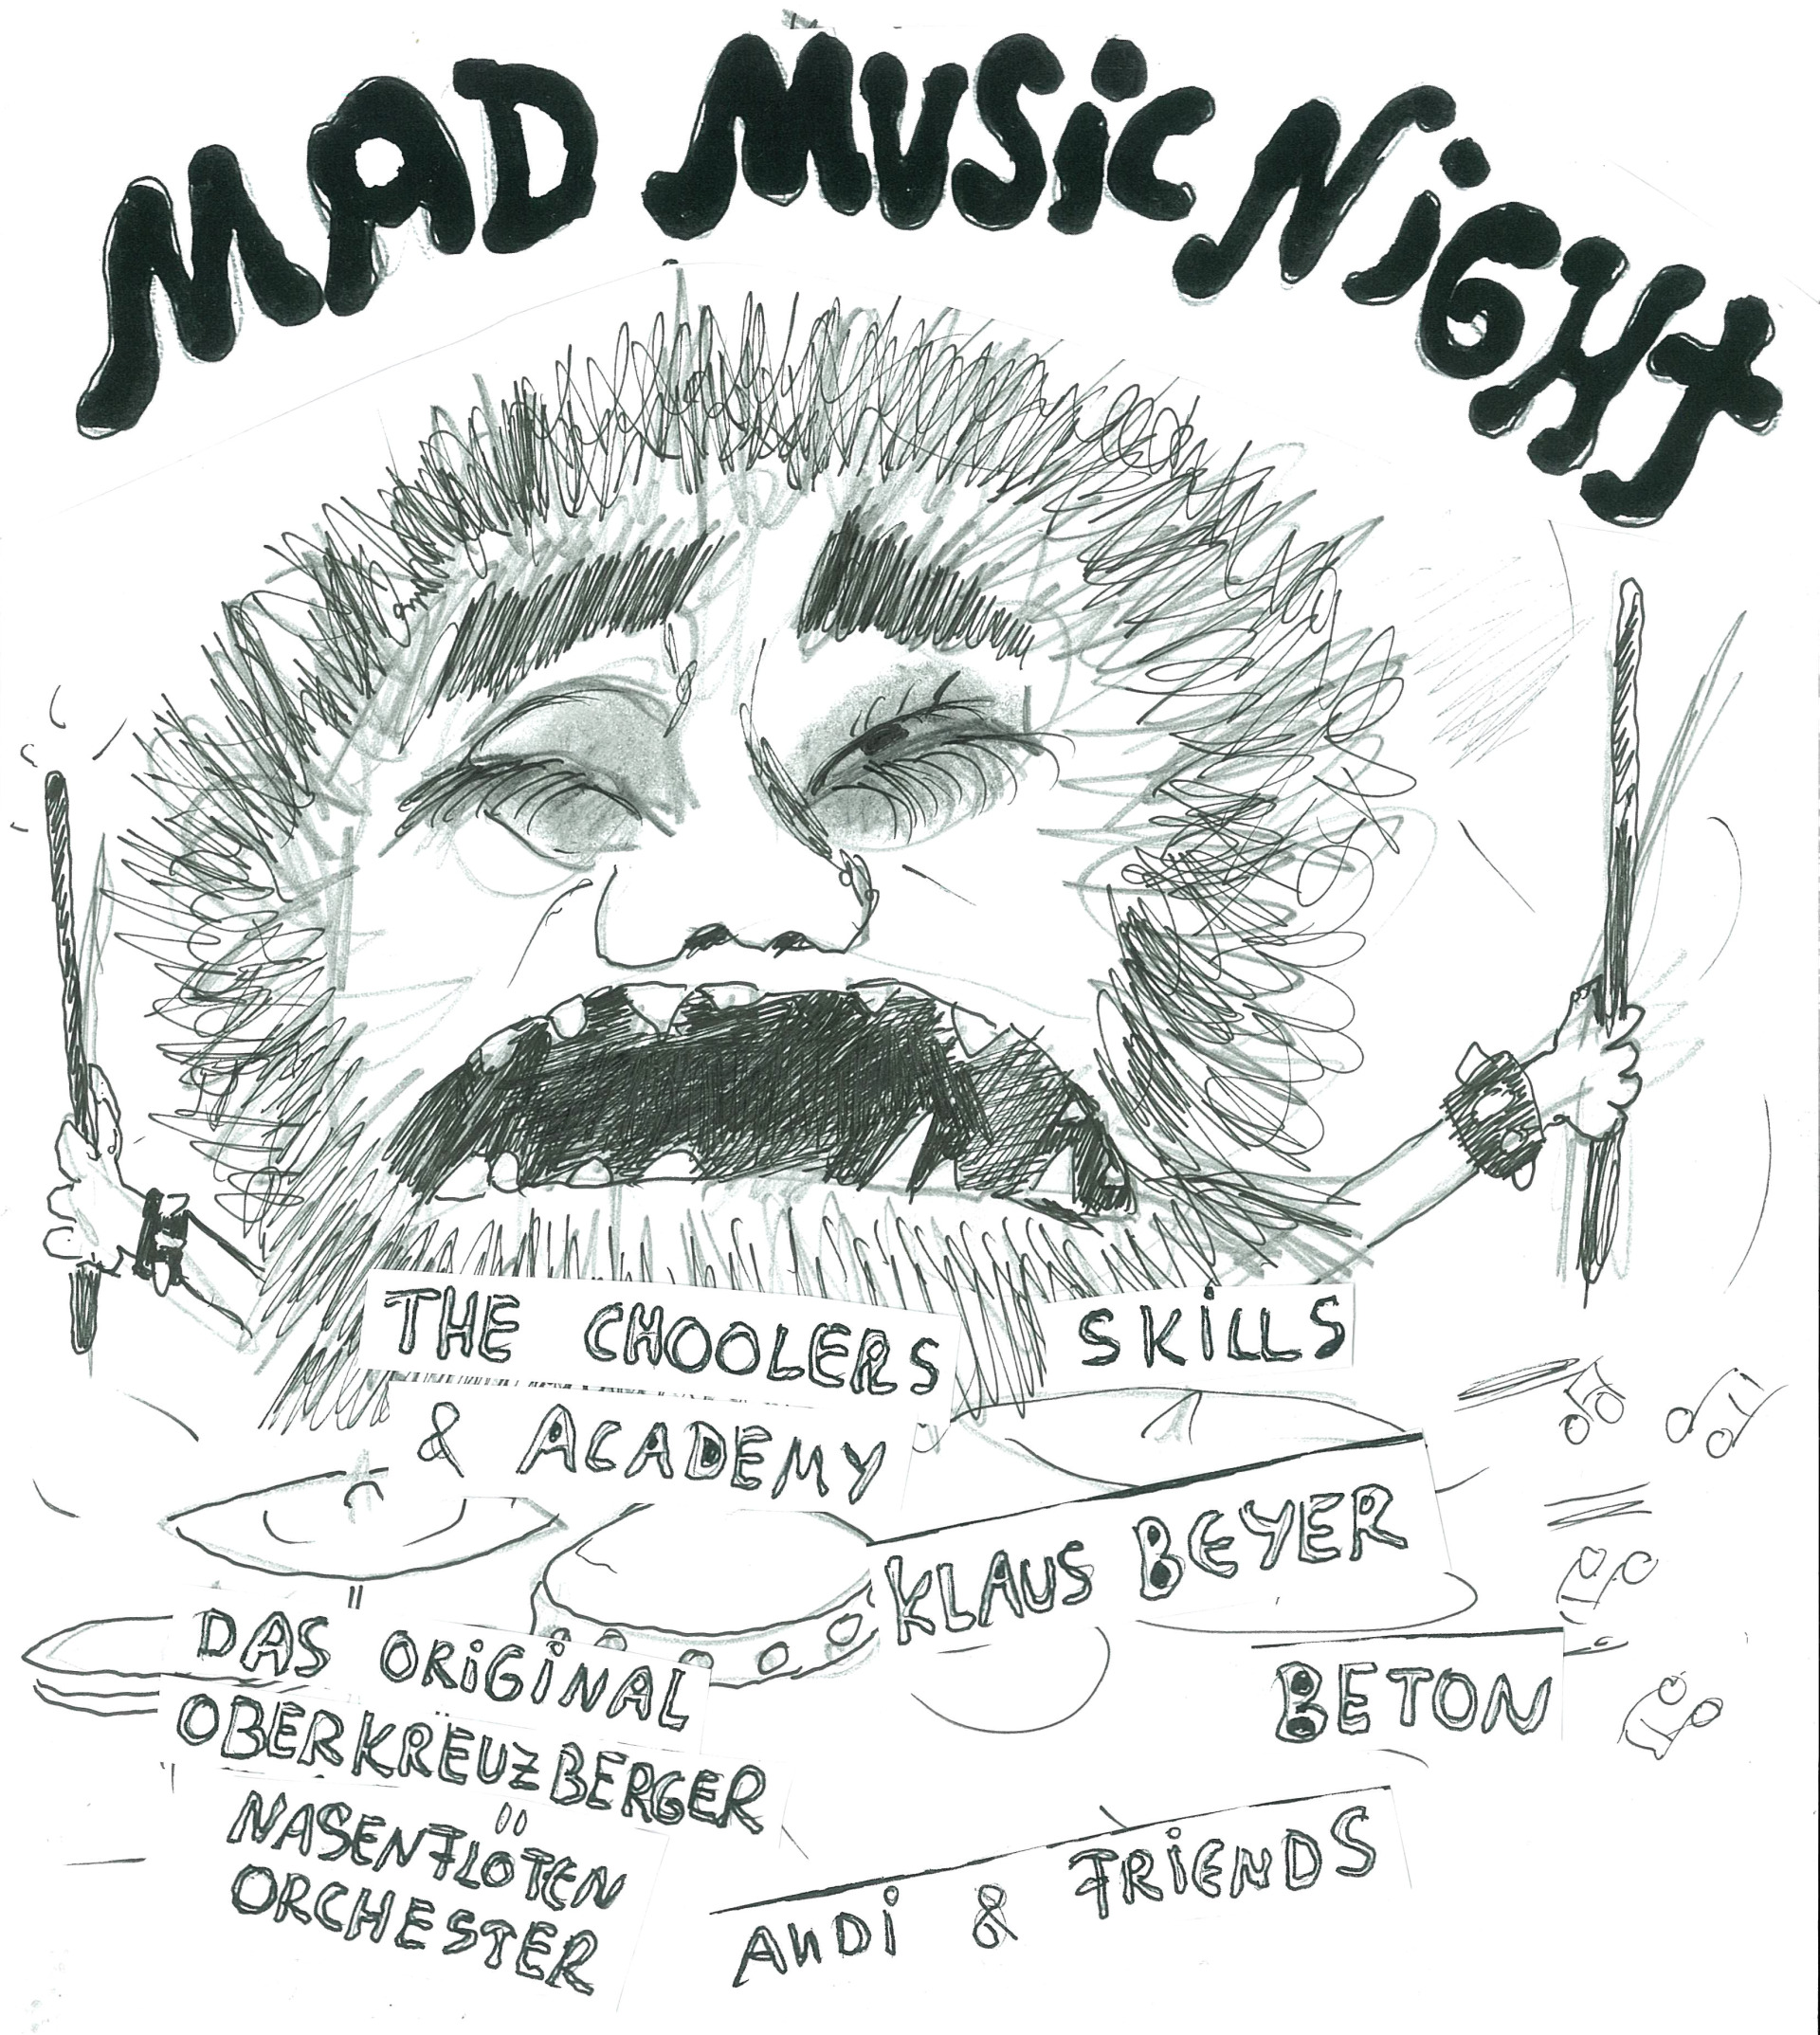 MAD MUSiC NiGHT
THE CHOOLERS
& ACADEMY
SKiLLS
KLAUS BEYER
DAS ORiGiNAL
OBERKREUZBERGER
NASENFLÖTEN
ORCHESTER
BETON
ANDi & FRiENDS